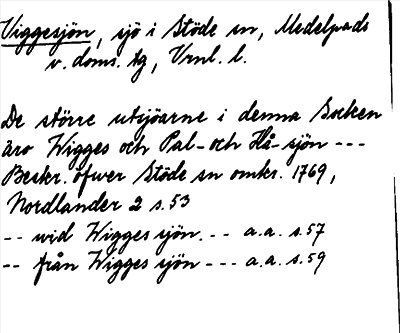 Viggesjön, sjö i Stöde sn, Medelpads
v. doms. tg, Vrnl. l.
De större utsjöarne i denna Socken
äro Wigges och Pal- och Hå-sjön ---
Beskr. öfwer Stöde sn omkr. 1769,
Nordlander 2 s. 53
-- wid Wigges sjön. -- a.a. s. 57
-- från Wigges sjön --- a.a. s. 59